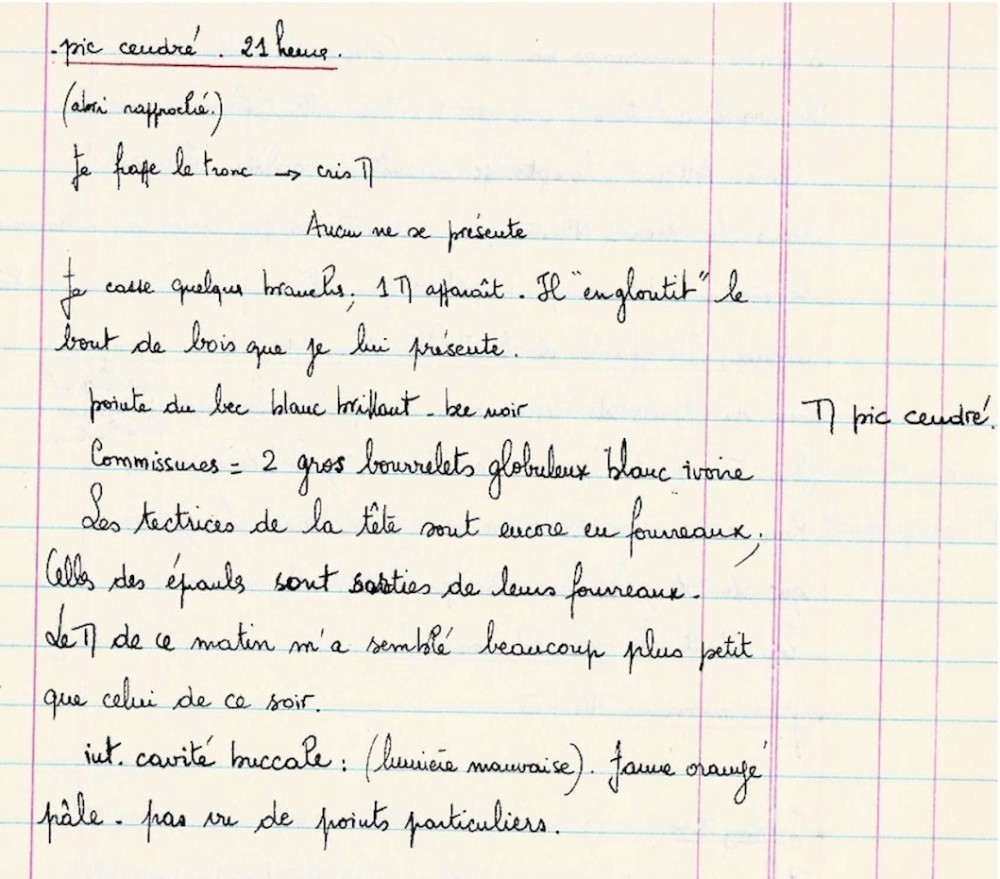 - pic cendré. 21 heures.
(abri rapproché.)
Je frappe le tronc → cris Π
Aucun ne se présente
Je casse quelques branches, 1 Π apparaît. Il "engloutit" le
bout de bois que je lui présente.
pointe du bec blanc brillant - bec noir
Π pic cendré.
Commissures = 2 gros bourrelets globuleux blanc ivoire
Les tectrices de la tête sont encore en fourreaux,
Celles des épaules sont sorties de leurs fourreaux.
Le Π de ce matin m'a semblé beaucoup plus petit
que celui de ce soir.
int. cavité buccale : (lumière mauvaise). Jaune orangé
pâle - pas vu de points particuliers.